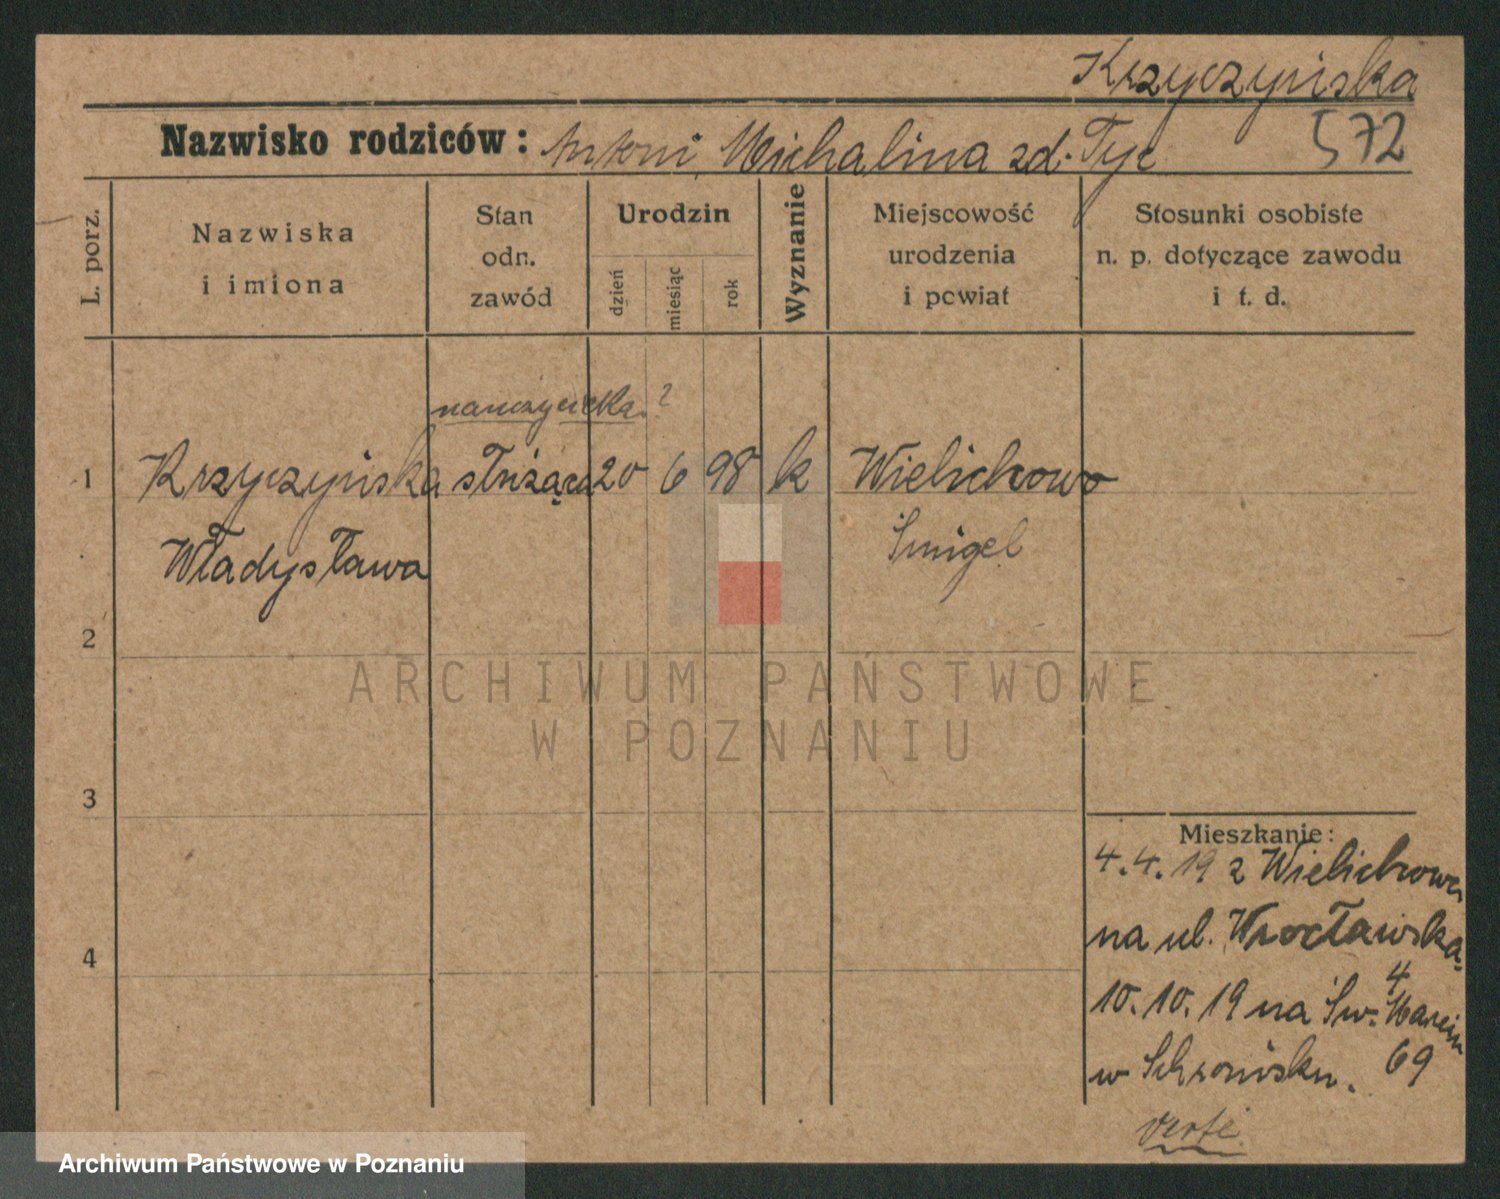 Krzyczyńska
Nazwisko rodziców: Antoni, Michalina zd. Tyc 572
L. porz.
Nazwiska
i imiona
Stan
odn.
zawód
Urodzin
dzień
miesiąc
rok
Wyznanie
Miejscowość
urodzenia
i powiat
Stosunki osobiste
n. p. dotyczące zawodu
i t. d.
nauczycielka?
1 Krzyczyńska służąca 20 6 98 k Wielichowo
Władysława Śmigel
2
ARCHIWUM PAŃSTWOWE
W POZNANIU
3
Mieszkanie:
4.4.19 z Wielichowa
na ul. Wrocławską
4
10.10.19 na Św. Marcin
w Schronisku. 69
4
verte
Archiwum Państwowe w Poznaniu